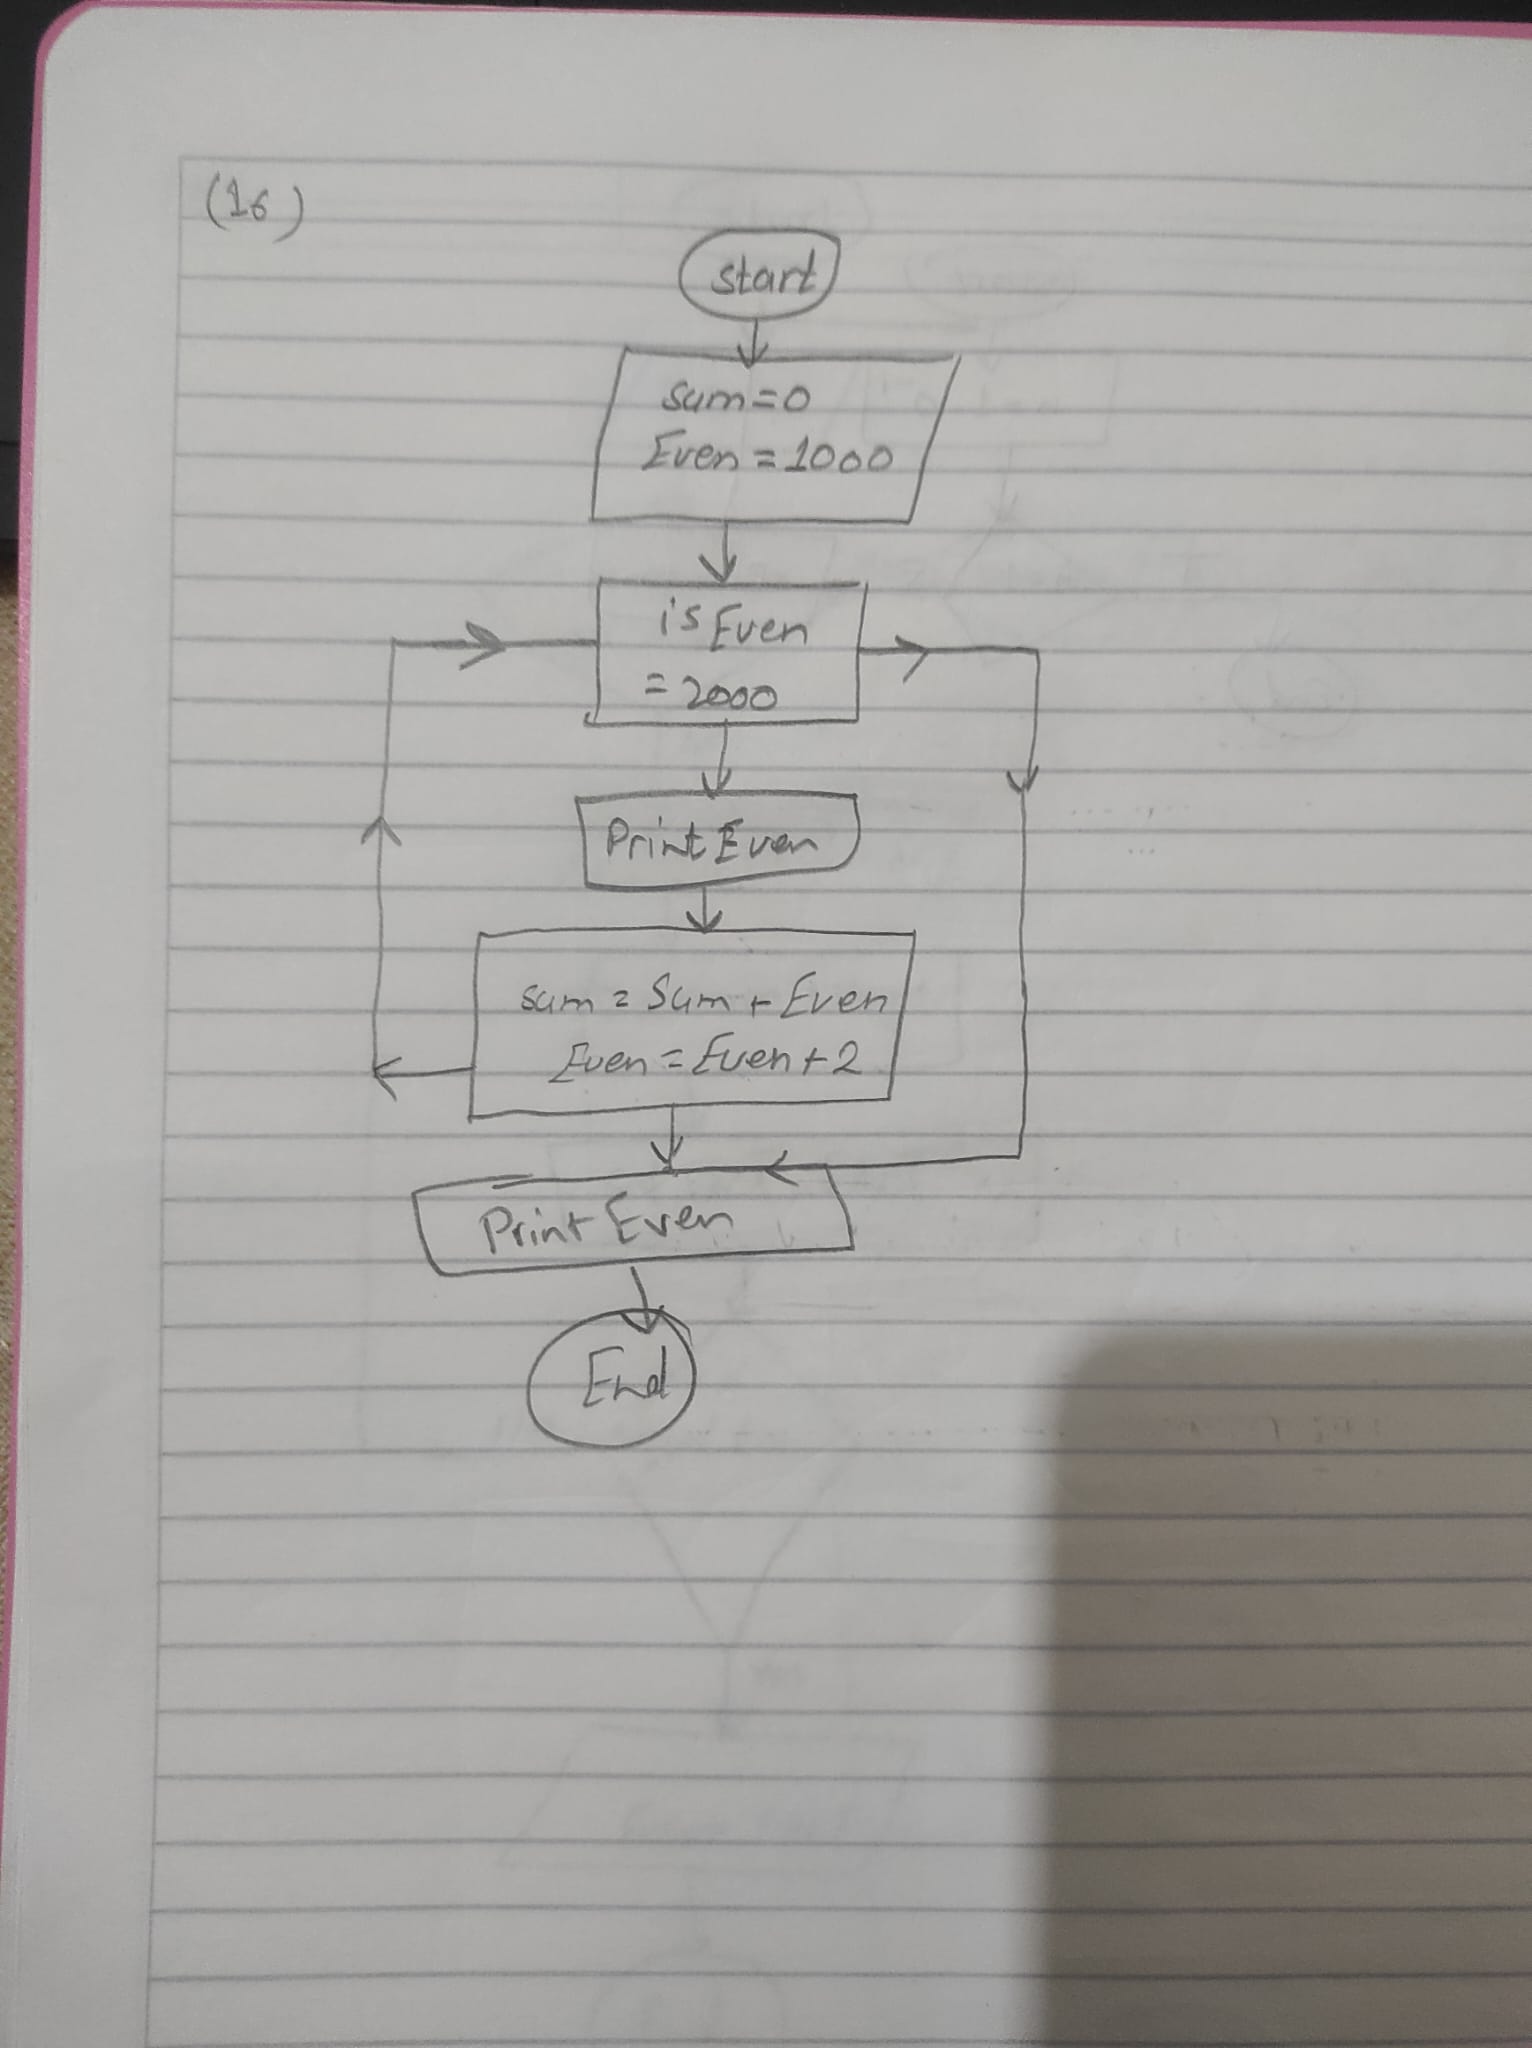 (16)
start
sum=0
Even = 1000
is Even
= 2000
Print Even
sum = Sum + Even
Even = Even + 2
Print Even
End